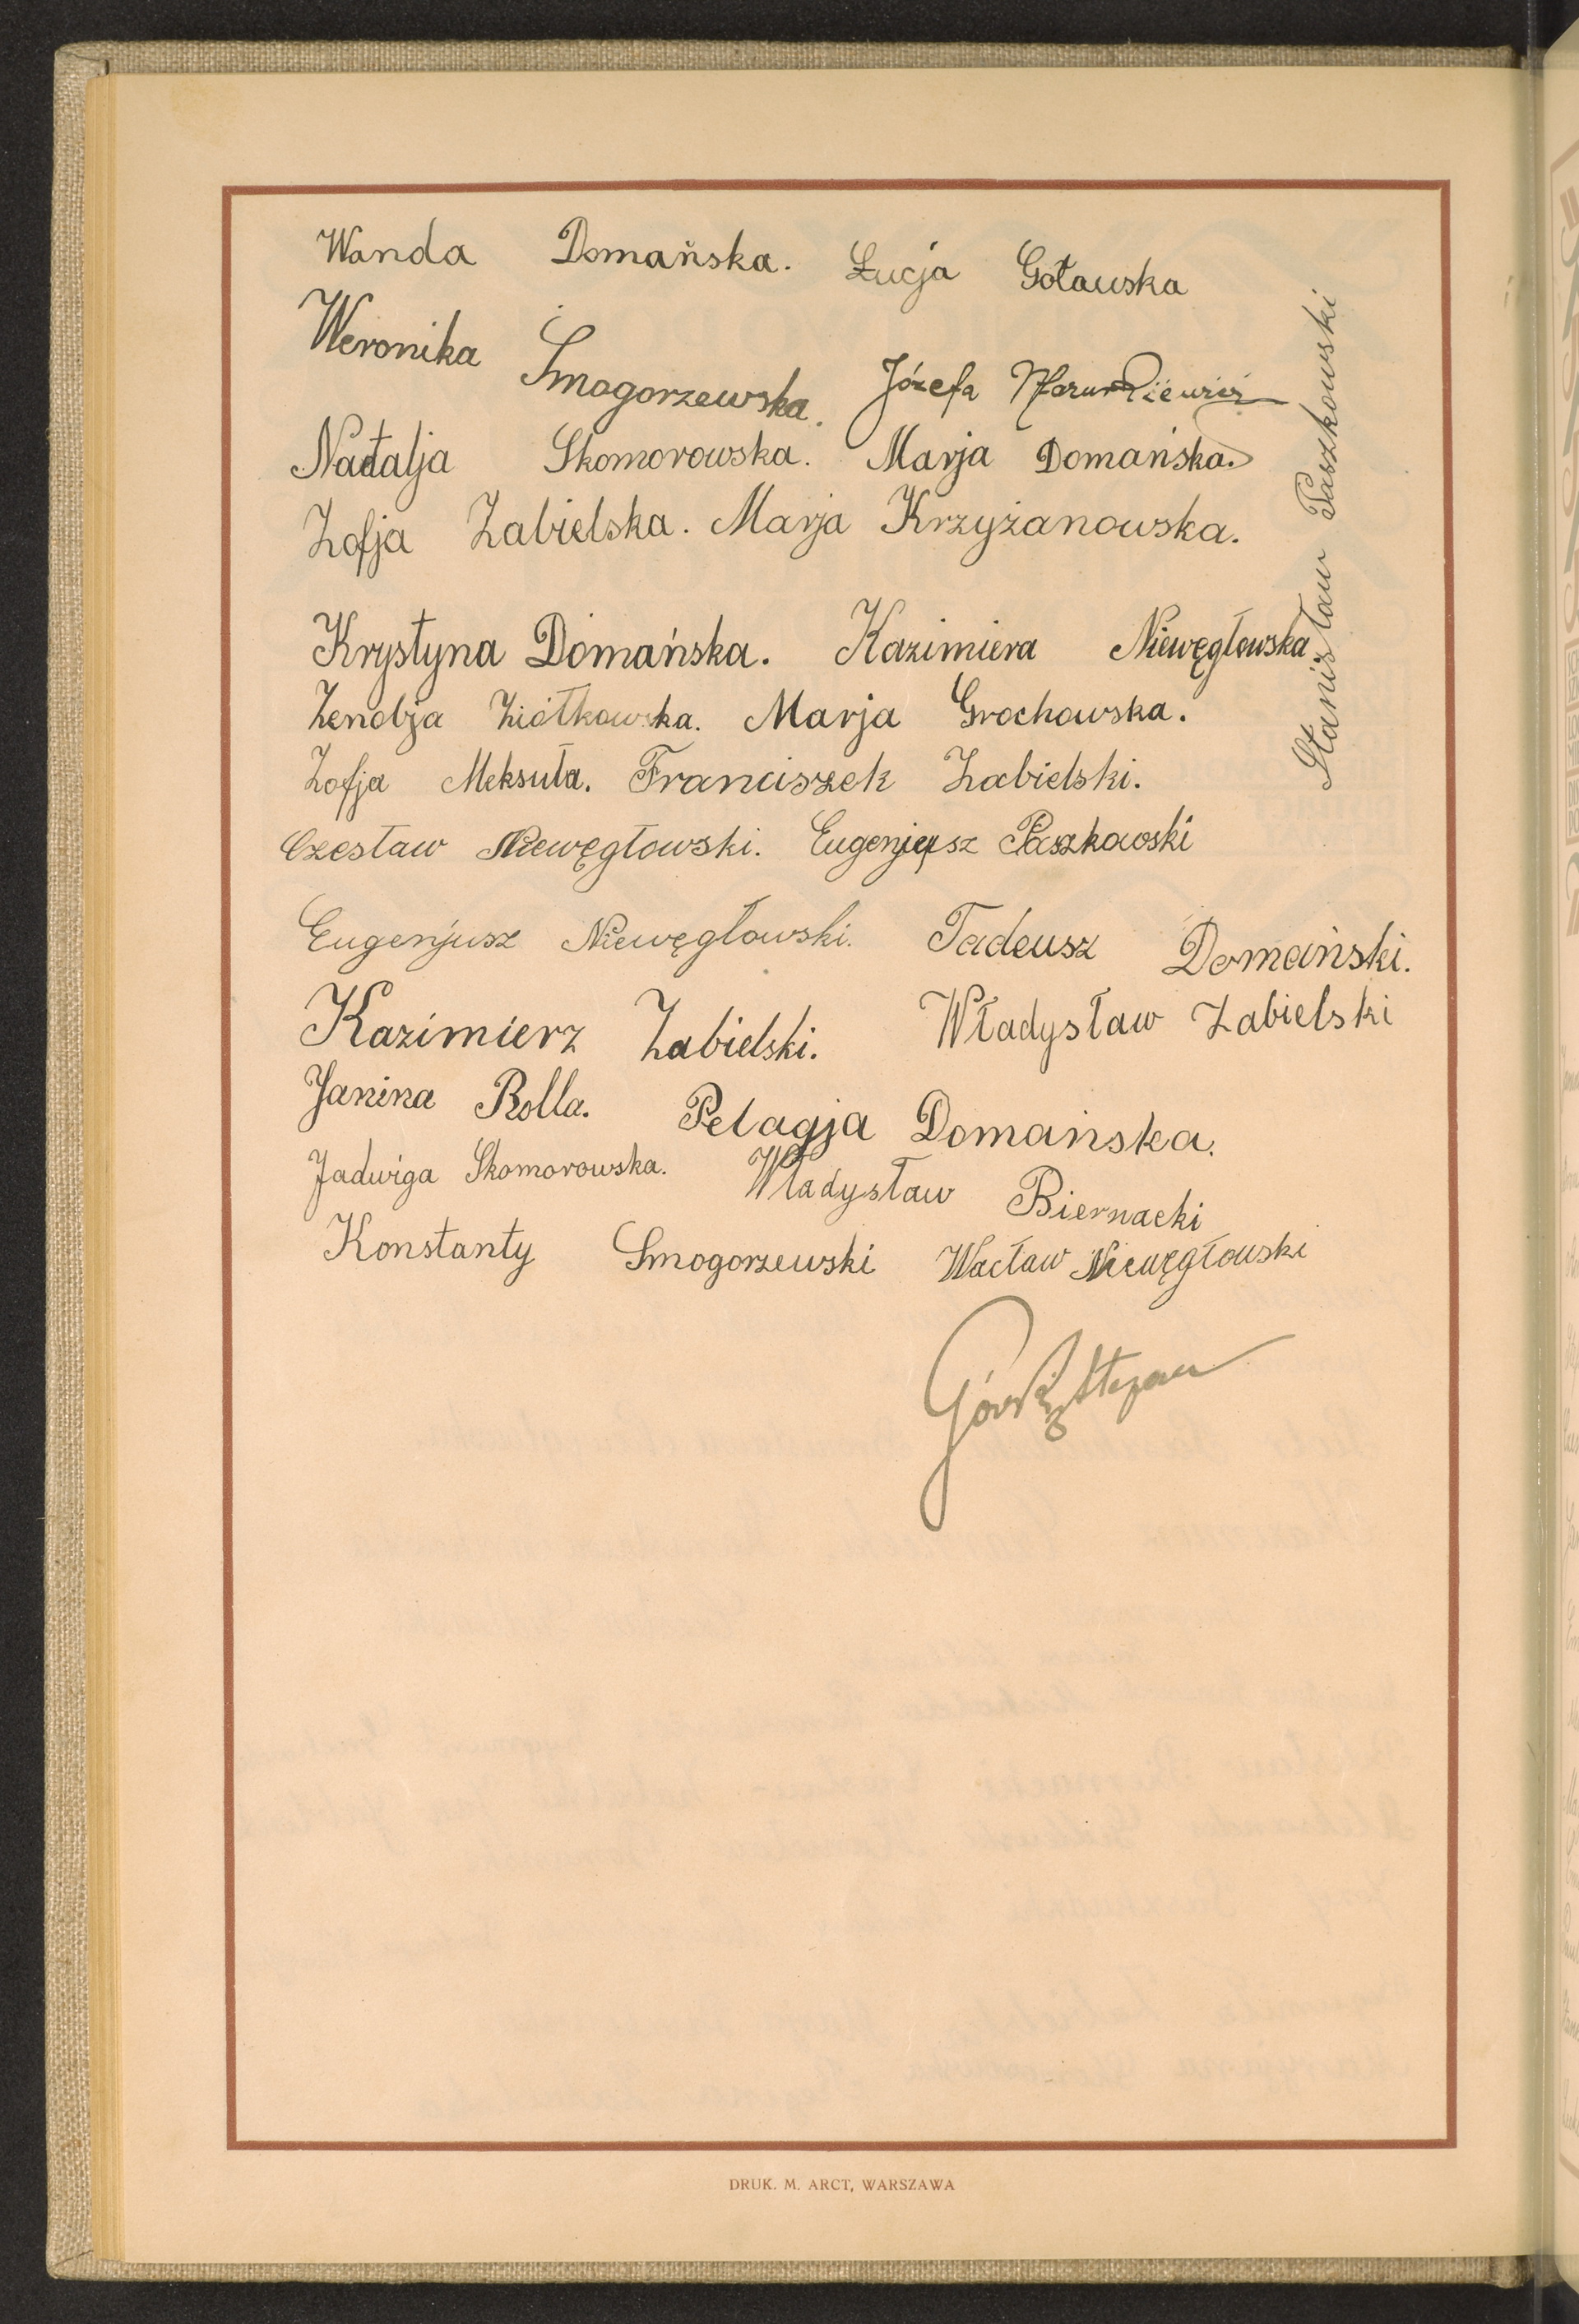 Wanda Domańska. Łucja Goławska
Weronika Smogorzewska. Józefa
Natalja Skomorowska. Marja Domańska.
Zofja Zabielska. Marja Krzyżanowska.
Krystyna Domańska. Kazimiera Niewęgłowska
Zenobja Ziółkowska. Marja Grochowska.
Zofja Meksuła. Franciszek Zabielski.
Czesław Niewęgłowski. Eugenjusz Paszkowski
Eugenjusz Niewęgłowski. Tadeusz Domański.
Kazimierz Zabielski. Władysław Zabielski
Janina Rolla. Pelagja Domańska.
Jadwiga Skomorowska. Władysław Biernacki
Konstanty Smogorzewski Wacław Niewęgłowski
Stanisław Paszkowski
DRUK. M. ARCT, WARSZAWA